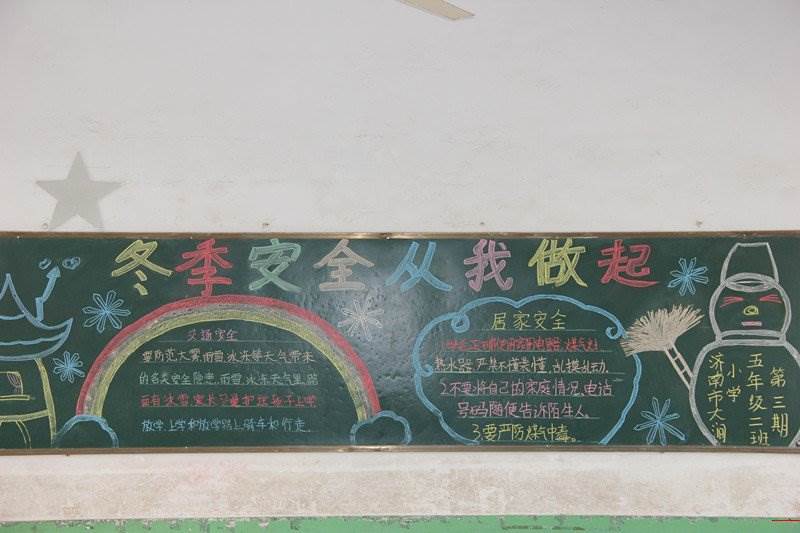 冬季安全从我做起
交通安全
要防范大雾,雨雪,冰冻等天气带来
的各类安全隐患,雨雪、冰冻天气里,路
面有冰雪,家长尽量护送孩子上学
放学,上学和放学路上骑车和行走。
居家安全
使用家用电器、煤气灶
热水器,严禁不懂装懂,乱摸乱动.
2不要将自己的家庭情况、电话
号码随便告诉陌生人。
3要严防煤气中毒。
济南市大涧
小学
五年级二班
第三期